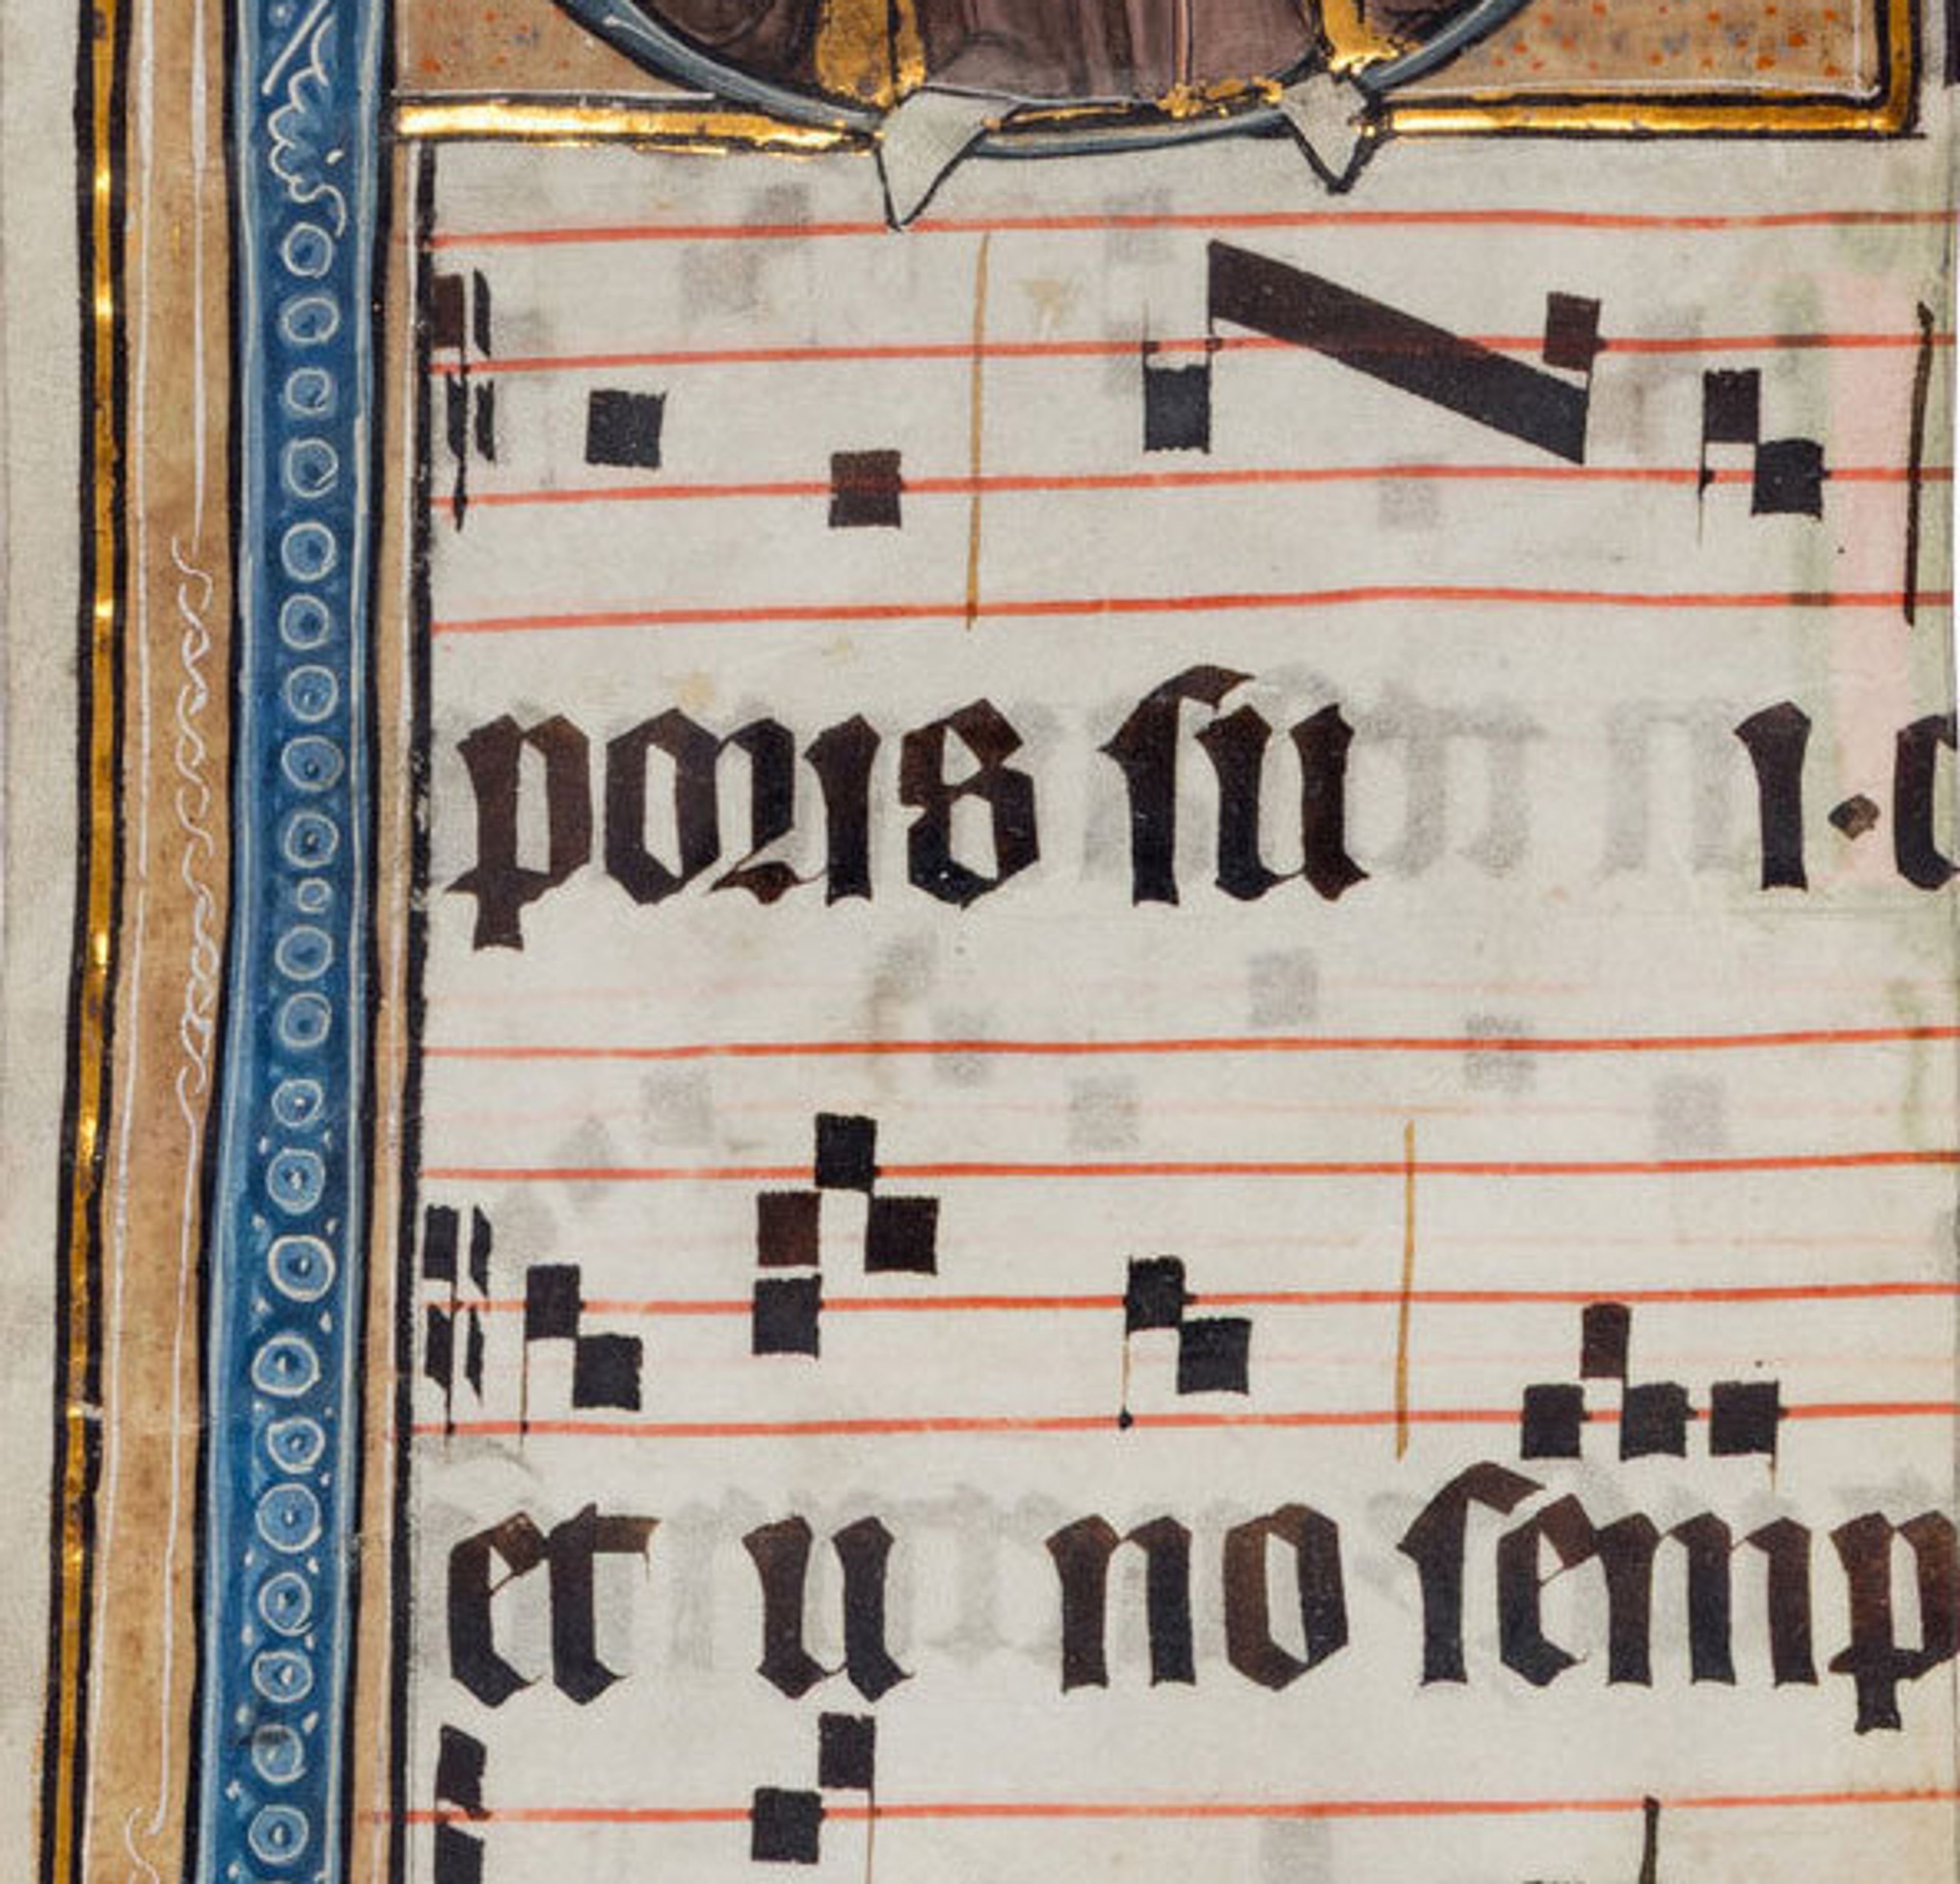 poris su i. c
et u no semp